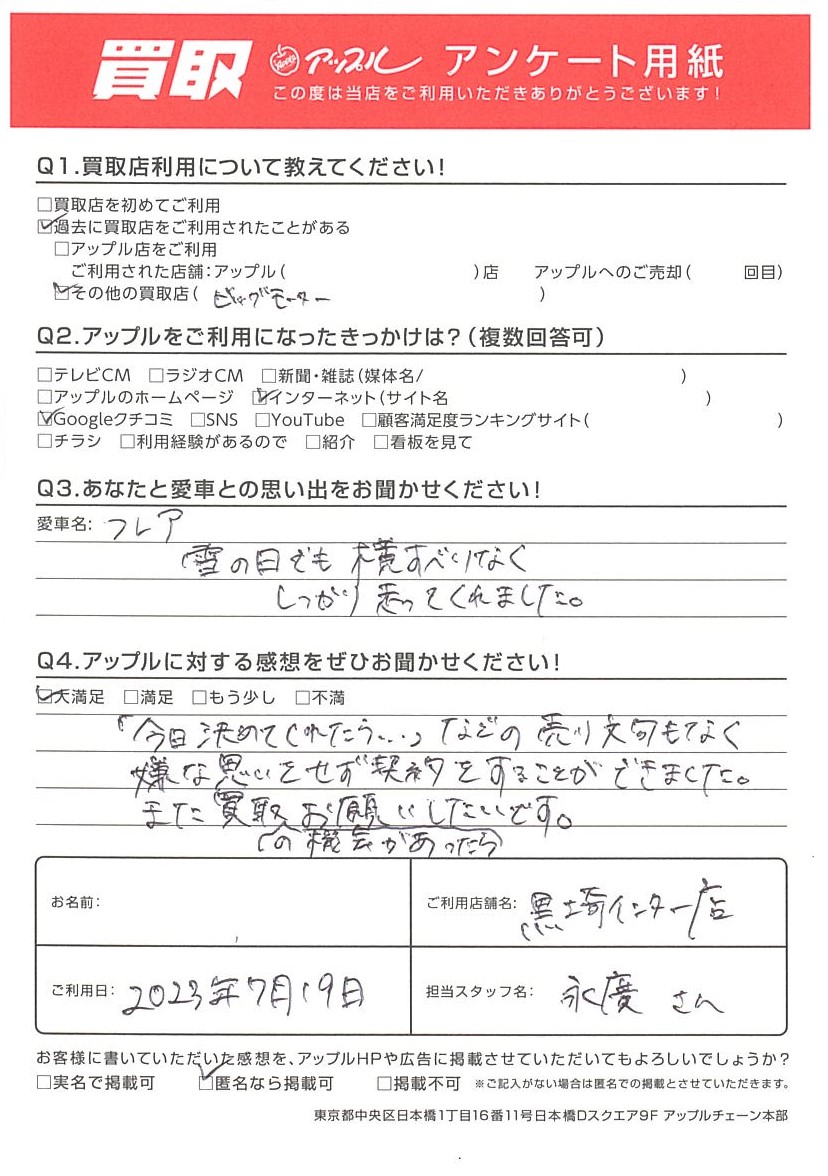 買取 アップル アンケート用紙
この度は当店をご利用いただきありがとうございます!
Q1.買取店利用について教えてください!
□買取店を初めてご利用
☑過去に買取店をご利用されたことがある
□アップル店をご利用
ご利用された店舗:アップル( )店 アップルへのご売却( 回目)
☑その他の買取店( ビッグモーター )
Q2.アップルをご利用になったきっかけは?(複数回答可)
□テレビCM □ラジオCM □新聞・雑誌(媒体名/ )
□アップルのホームページ ☑インターネット(サイト名 )
☑Googleクチコミ □SNS □YouTube □顧客満足度ランキングサイト( )
□チラシ □利用経験があるので □紹介 □看板を見て
Q3.あなたと愛車との思い出をお聞かせください!
愛車名: フレア
雪の日でも横すべりなく
しっかり走ってくれました。
Q4.アップルに対する感想をぜひお聞かせください!
☑大満足 □満足 □もう少し □不満
「今日決めてくれたら...」などの売り文句もなく
嫌な思いをせず契約をすることができました。
また買取お願いしたいです。
の機会があったら
お名前:
ご利用店舗名: 黒埼インター店
ご利用日: 2023年7月19日
担当スタッフ名: 永度 さん
お客様に書いていただいた感想を、アップルHPや広告に掲載させていただいてもよろしいでしょうか?
□実名で掲載可 ☑匿名なら掲載可 □掲載不可 ※ご記入がない場合は匿名での掲載とさせていただきます。
東京都中央区日本橋1丁目16番11号日本橋Dスクエア9F アップルチェーン本部